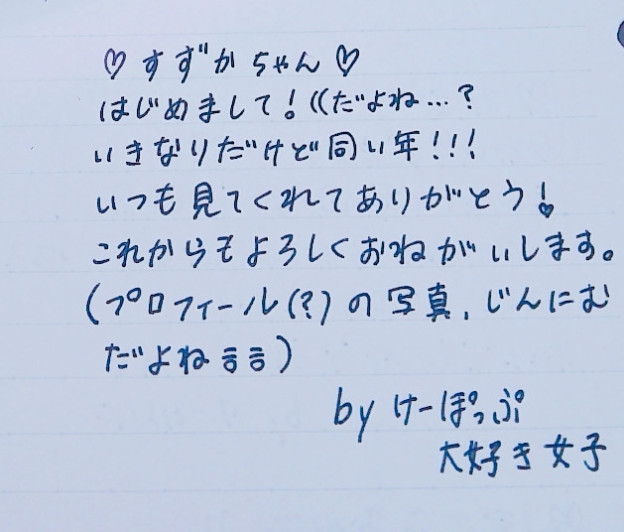 ♡すずかちゃん♡
はじめまして！((だよね…？
いきなりだけど同い年！！！
いつも見てくれてありがとう！
これからもよろしくおねがいします。
(プロフィール(?)の写真、じんにむ
だよね言言)
by けーぽっぷ
大好き女子